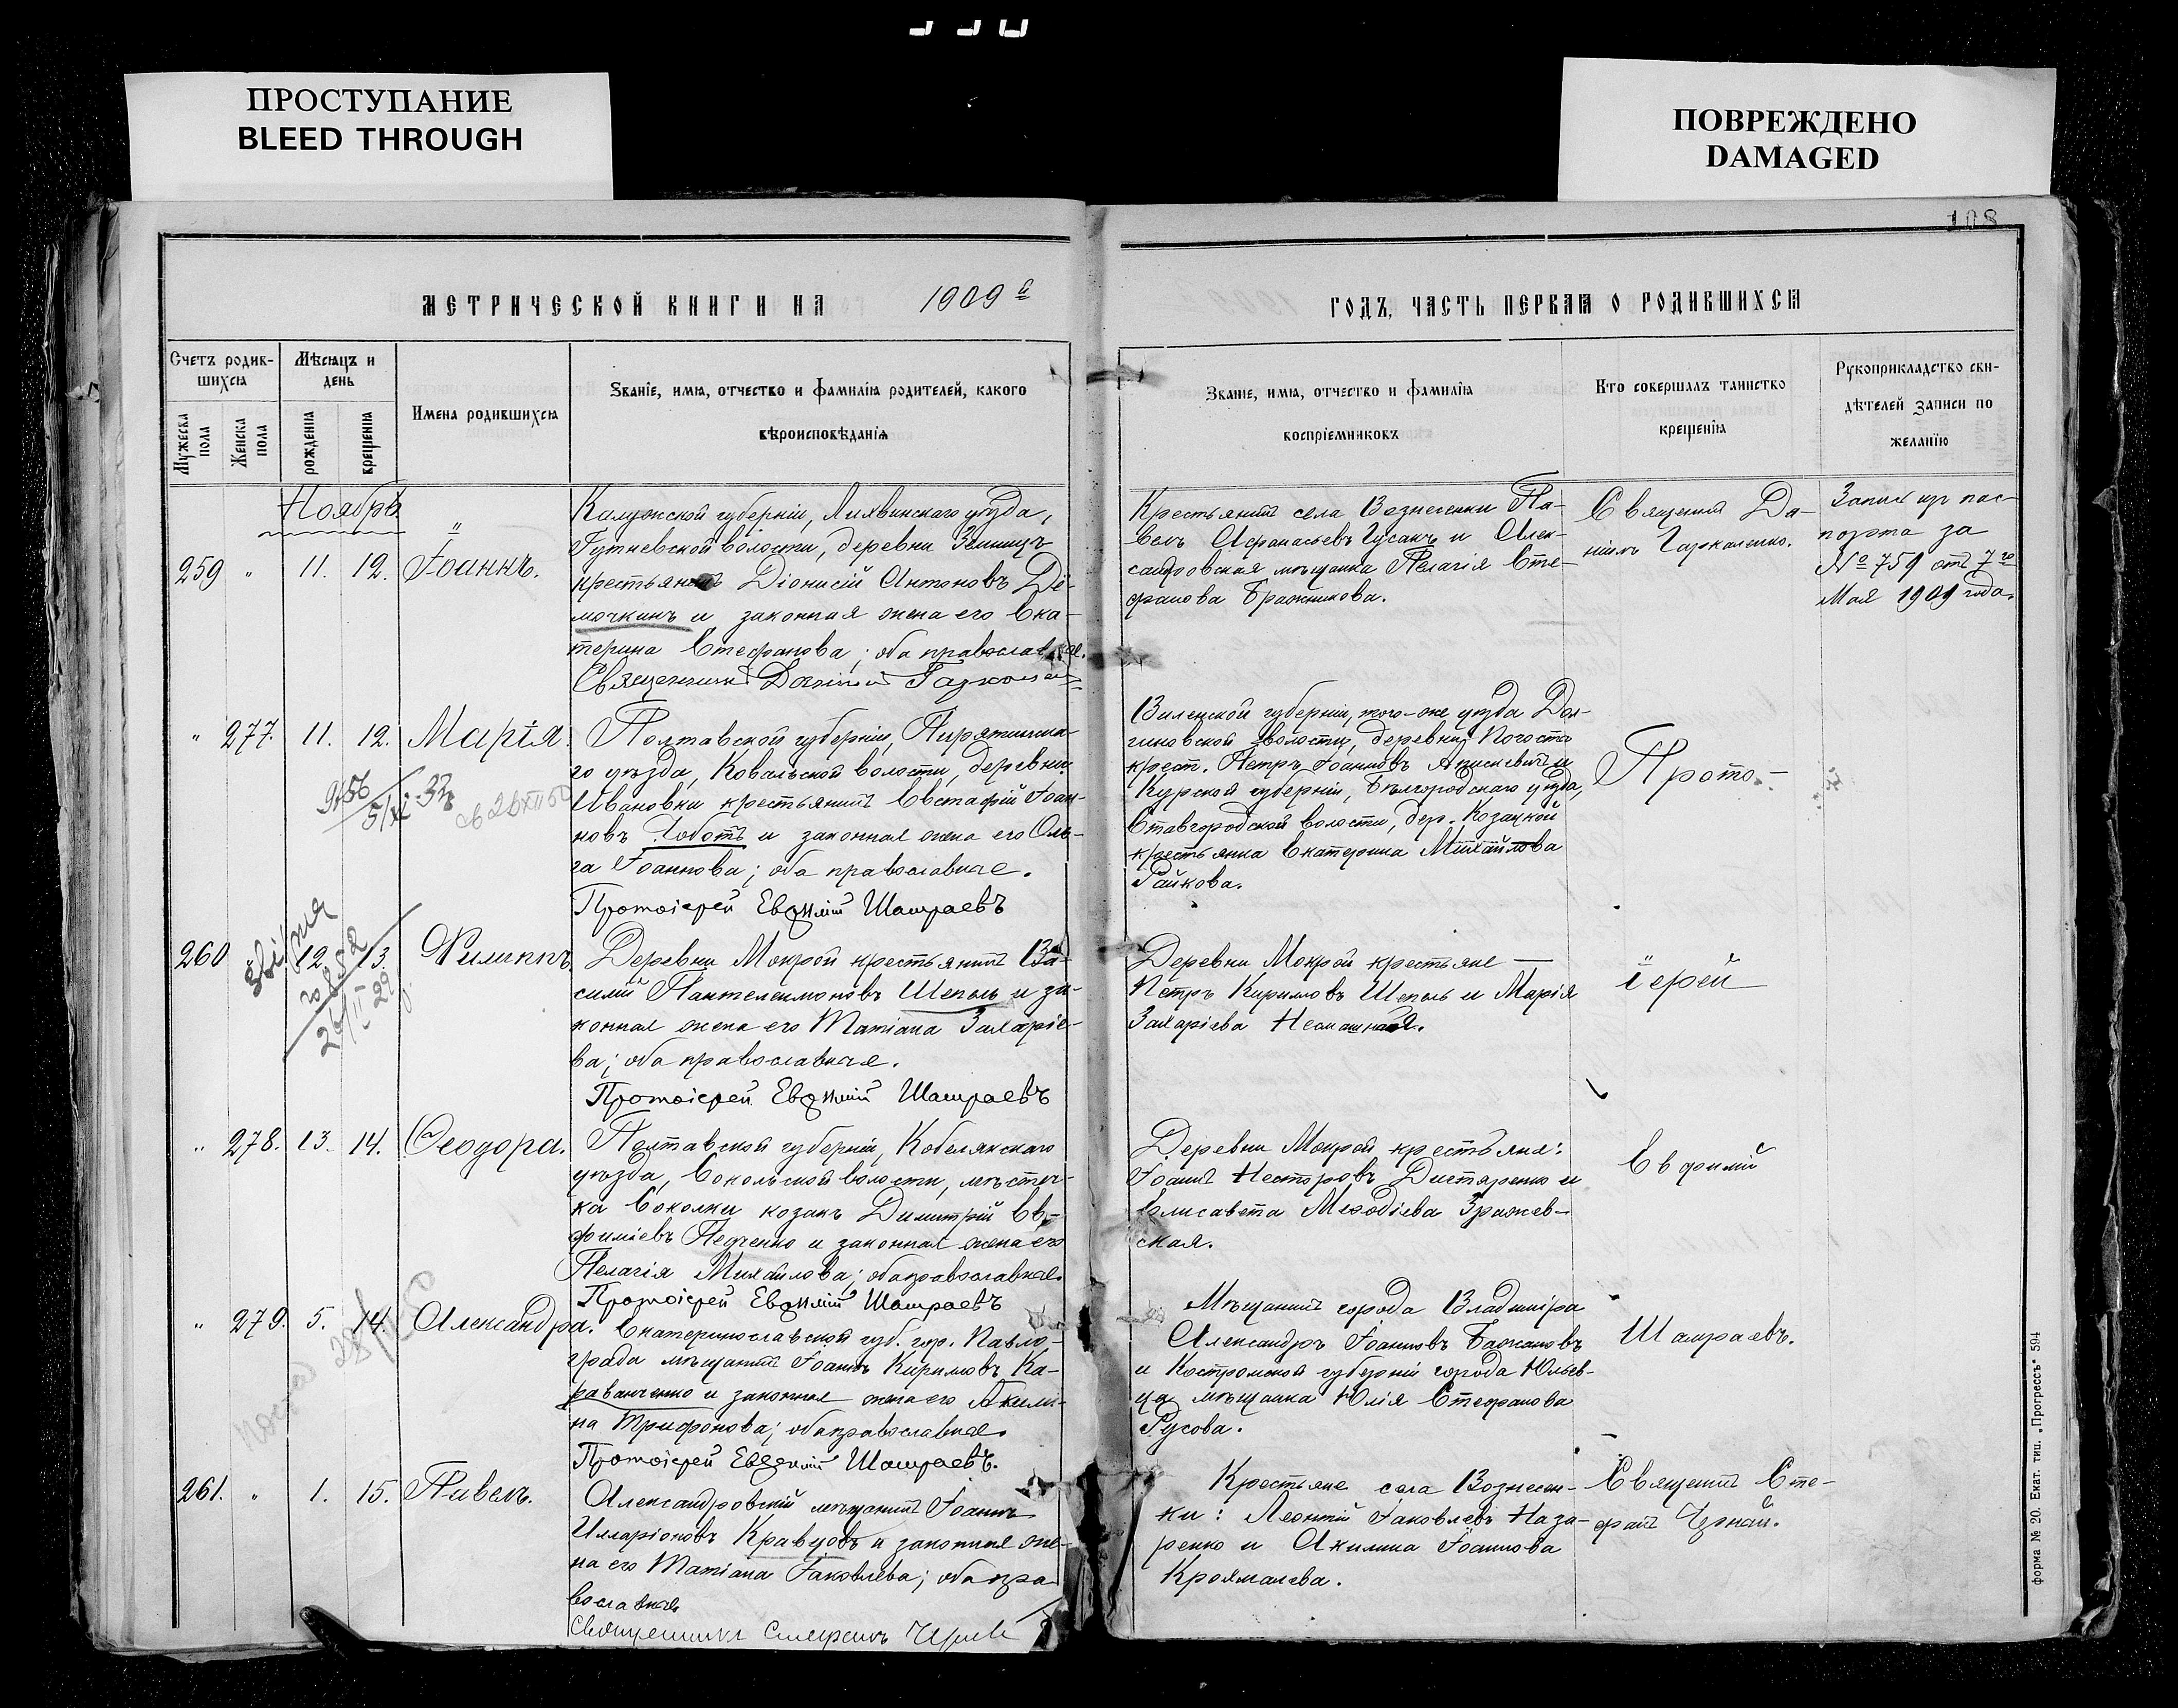 ПРОСТУПАНИЕ
BLEED THROUGH
ПОВРЕЖДЕНО
DAMAGED
108
МЕТРИЧЕСКОЙ КНИГИ НА 1909й
ГОДЪ, ЧАСТЬ ПЕРВАЯ О РОДИВШИХСЯ
Счетъ родив-
шихся
Мужеска пола
Женска пола
Мѣсяцъ и
день
рожденія
крещенія
Имена родившихся
Званіе, имя, отчество и фамилія родителей, какого
вѣроисповѣданія
Званіе, имя, отчество и фамилія
воспріемниковъ
Кто совершалъ таинство
крещенія
Рукоприкладство сви-
дѣтелей записи по
желанію
Ноябрь
259 " 11. 12. Іоаннъ.
Калужской губерніи, Лихвинскаго уѣзда,
волости, деревни
Діонисій Антоновъ Де-
мочкинъ и законная жена его Ека-
терина Стефанова; оба православные.
Священникъ Даніилъ
Крестьянинъ села Вознесенки Па-
велъ Афанасьевъ Гусакъ и Алек-
сандровская мѣщанка Пелагія Сте-
фанова Бражникова.
Священникъ Да-
ніилъ
Запись изъ пас-
порта за
№ 759 отъ 7го
Мая 1909 года.
" 277. 11. 12. Марія.
Полтавской губерніи, Пирятинска-
го уѣзда, Ковальской волости, деревни
Ивановки крестьянинъ Евстафій Іоан-
новъ Чоботъ и законная жена его Оль-
га Іоаннова; оба православные.
Протоіерей Евфимій Шашраевъ
Виленской губерніи, того-же уѣзда Дол-
гиновской волости, деревни Погоста
крест. Петръ Іоанновъ и
Курской губерніи, Бѣлгородскаго уѣзда,
волости, дер. Козацкой
крестьянка Екатерина Михайлова
Райкова.
Прото-
260 " 12. 13. Филиппъ
Деревни Мокрой крестьянинъ Ва-
силій Пантелеимоновъ Шепель и за-
конная жена его Татіана Захаріе-
ва; оба православные.
Протоіерей Евфимій Шашраевъ
Деревни Мокрой крестьяне
Петръ Кирилловъ Шепель и Марія
Захаріева
іерей
" 278. 13. 14. Феодора.
Полтавской губерніи, Кобелякскаго
уѣзда, Сокольской волости, мѣстеч-
ка Соколки козакъ Димитрій Ев-
фиміевъ Педченко и законная жена его
Пелагія Михайлова; оба православные.
Протоіерей Евфимій Шашраевъ
Деревни Мокрой крестьяне:
Іоаннъ Несторовъ и
Елисавета Меѳодіева Зражев-
ская.
Евфимій
" 279. 5. 14. Александра.
Екатеринославской губ. гор. Павло-
града мѣщанинъ Іоаннъ Кирилловъ Ка-
раванченко и законная жена его Акили-
на Трифонова; оба православные.
Протоіерей Евфимій Шашраевъ.
Мѣщанинъ города Владиміра
Александръ Іоанновъ Бажановъ
и Костромской губерніи города Юрьев-
ца мѣщанка Юлія Стефанова
Русова.
Шашраевъ.
261. " 1. 15. Павелъ.
Александровскій мѣщанинъ Іоаннъ
Илларіоновъ Кравцовъ и законная же-
на его Татіана Іаковлева; оба пра-
вославные
Священникъ Стефанъ
Крестьяне села Вознесен-
ки: Леонтій Іаковлевъ Наза-
ренко и Акилина Іоаннова
Крохмалева.
Священникъ Сте-
фанъ
форма № 20. Екат. тип. „Прогрессъ" 594